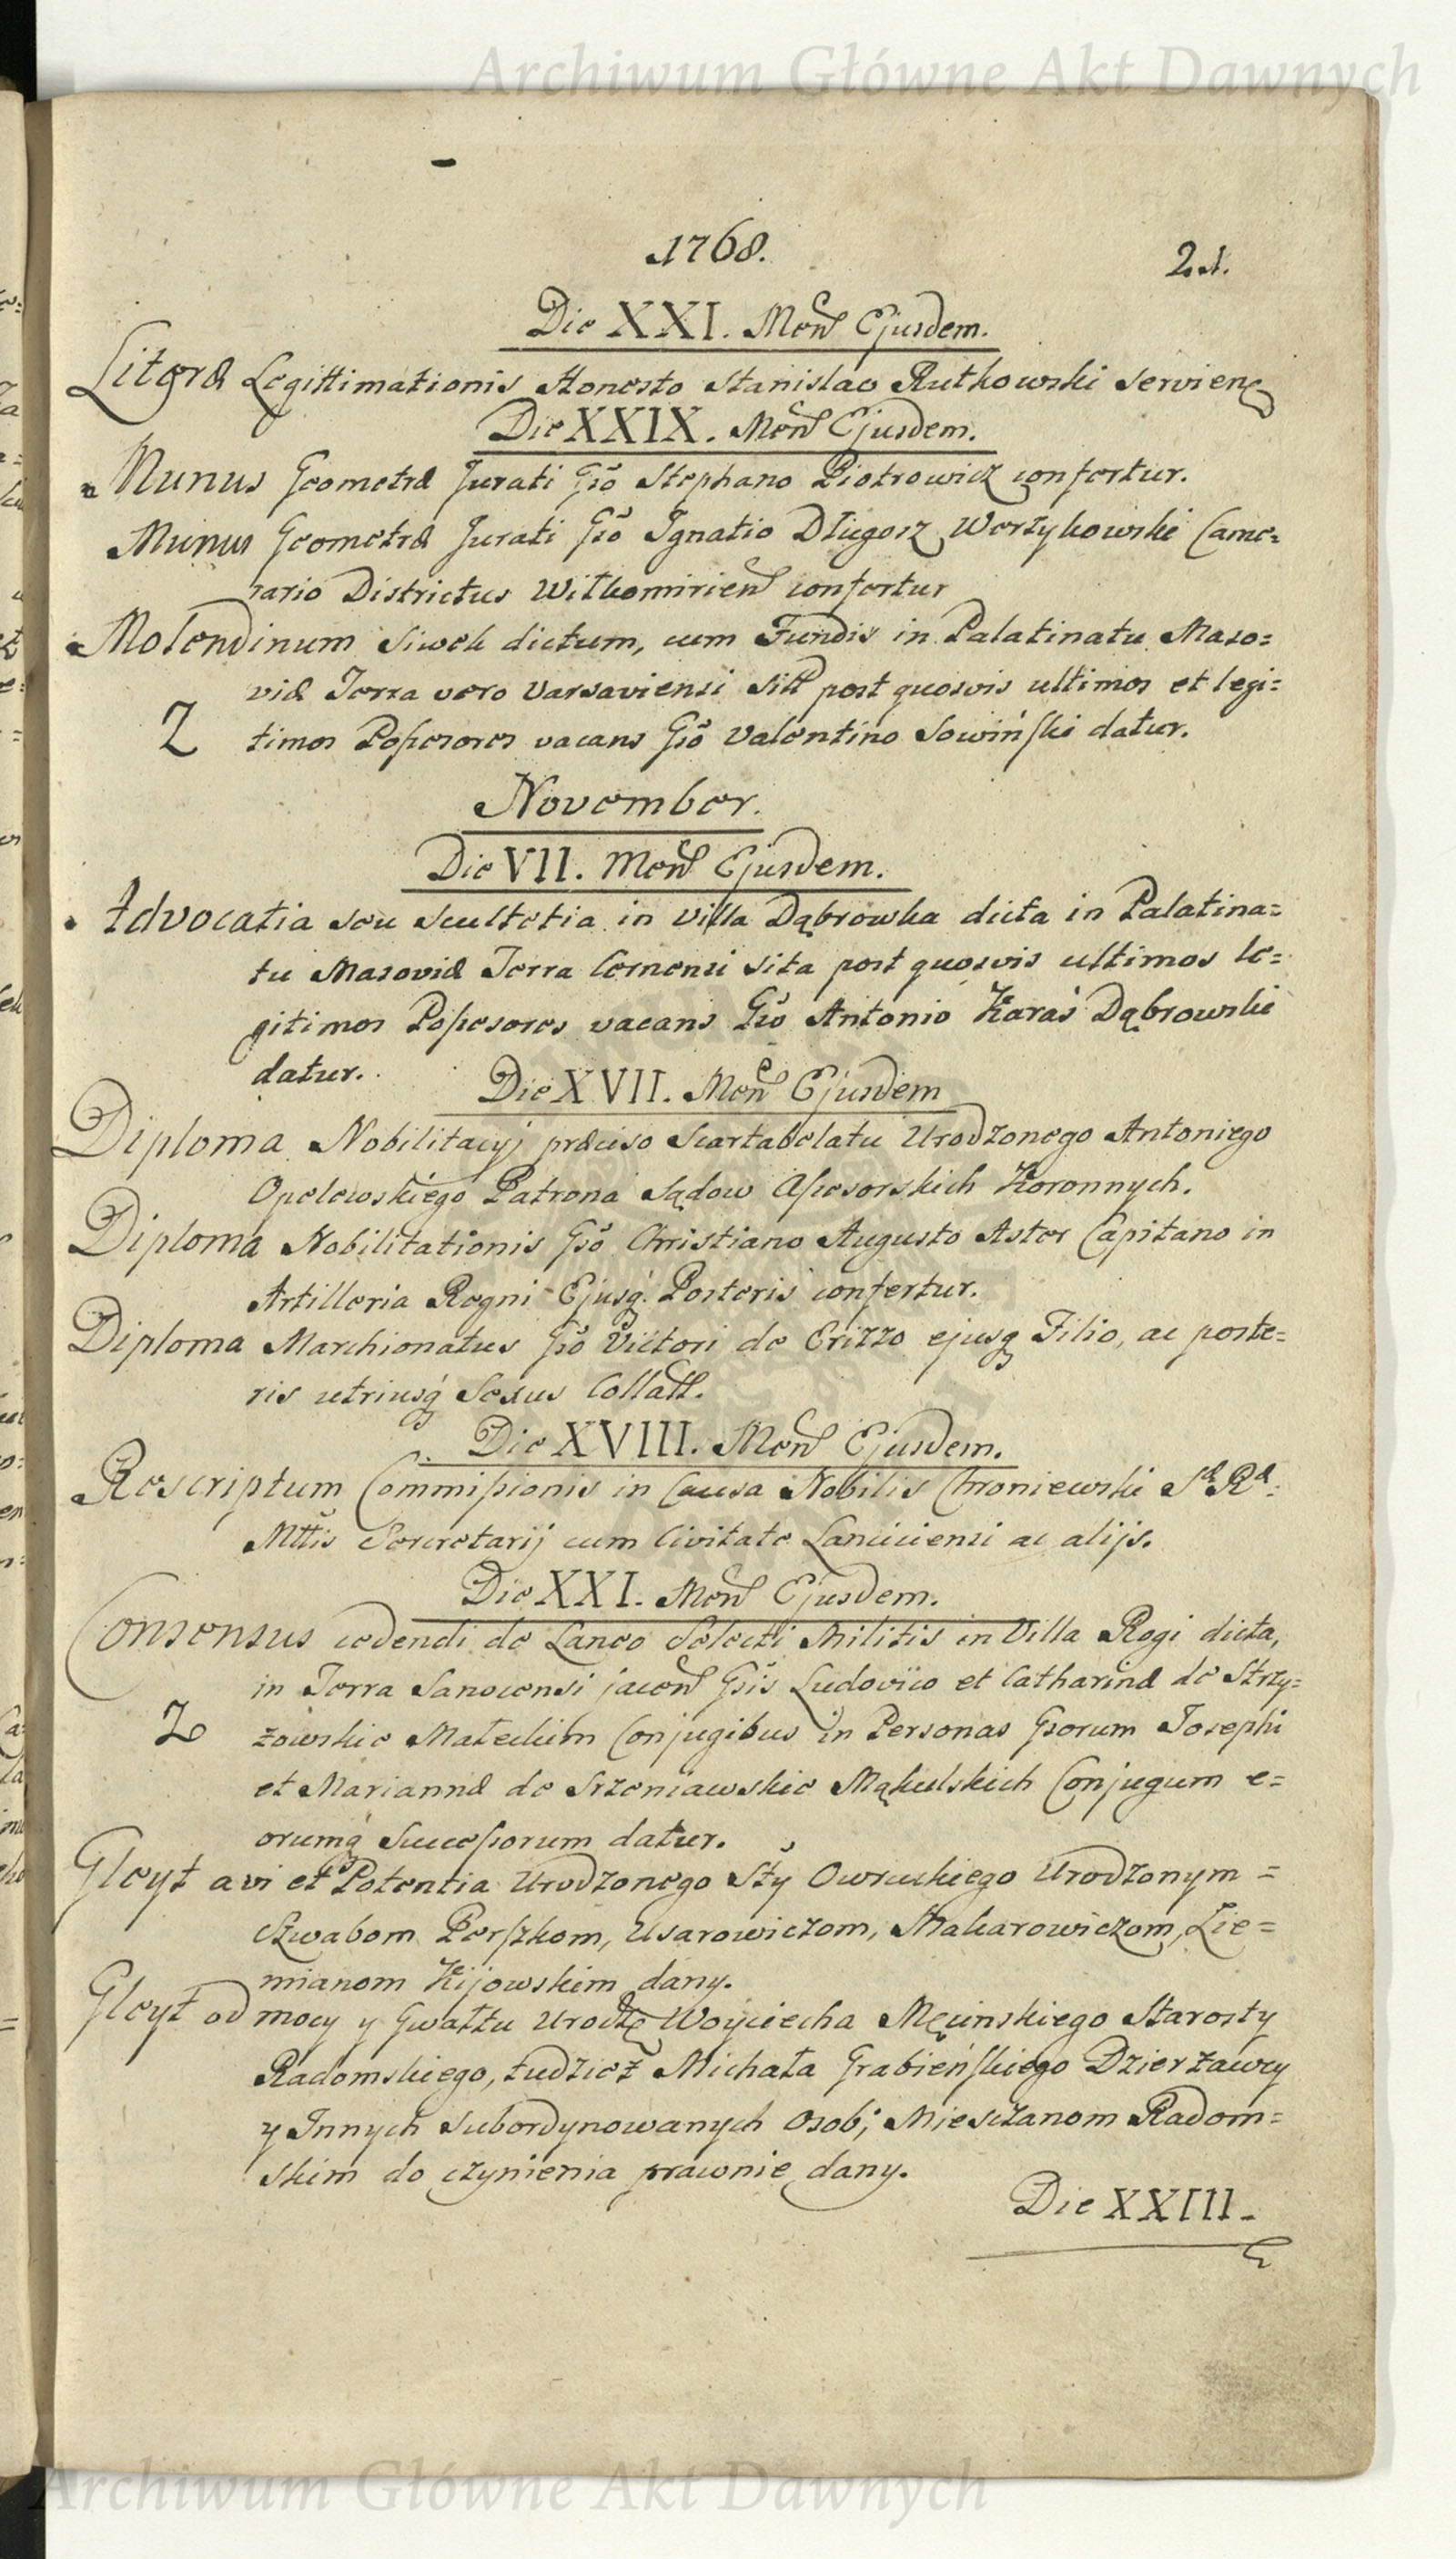 Archiwum Główne Akt Dawnych
1768.
21.
Die XXI. Men͠s Ejusdem.
Literæ Legittimationis Honesto Stanislao Rutkowski servien͠
Die XXIX. Men͠s Ejusdem.
Munus Geometræ Jurati Gso Stephano Piotrowicz confertur.
Munus Geometræ Jurati Gso Ignatio Długosz Werzykowski Came=
rario Districtus Wilkomirien͠s confertur
Molendinum Siwek dictum, cum Fundis in Palatinatu Maso=
viæ Terra vero Varsaviensi sitt post quosvis ultimos et legi=
Z timos Possesores vacans Gso Valentino Sowiński datur.
November.
Die VII. Men͠s Ejusdem.
Advocatia seu Scultetia in Villa Dąbrowka dicta in Palatina=
tu Masoviæ Terra Cernensi sita post quosvis ultimos le=
gitimos Possesores vacans Gso Antonio Karaś Dąbrowski
datur.
Die XVII. Men͠s Ejusdem
Diploma Nobilitacyj præciso Scartabelatu Urodzonego Antoniego
Opelewskiego Patrona Sądow Assesorskich Koronnych.
Diploma Nobilitationis Gso Christiano Augusto Aster Capitano in
Artilleria Regni Ejusq. Posteris confertur.
Diploma Marchionatus Gso Victori de Erizzo ejusq Filio, ac poste=
ris utriusq Sexus Collatt.
Die XVIII. Men͠s Ejusdem.
Rescriptum Commissionis in Causa Nobilis Chroniewski Sæ Ræ
Mttis Secretarij cum Civitate Lanciciensi ac alijs.
Die XXI. Men͠s Ejusdem.
Consensus cedendi de Laneo Selecti Militis in Villa Rogi dicta,
in Terra Sanocensi jacen͠ Gsis Ludovico et Catharinæ de Strzy=
Z żowskie Małeckim Conjugibus in Personas Gsorum Josephi
et Mariannæ de Srzeniawskie Mąkulskich Conjugum e=
orumq Successorum datur.
Gleyt a vi et Potentia Urodzonego Stty Owruckiego Urodzonym =
Szwabom Perszkom, Usarowiczom, Makarowiczom, Zie=
mianom Kijowskim dany.
Gleyt od mocy y Gwałtu Urodze Woyciecha Męcinskiego Starosty
Radomskiego, tudzież Michała Grabieńskiego Dzierzawcy
y Innych subordynowanych Osob; Miesczanom Radom=
skim do czynienia prawnie dany.
Die XXIII.
Archiwum Główne Akt Dawnych